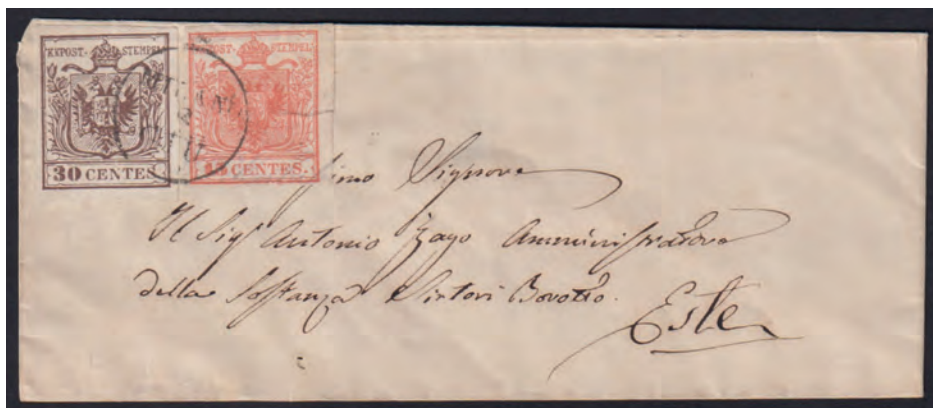 KKPOST-STEMPEL
30 CENTES.
POST-STEMPEL
15 CENTES.
MILANO
Signore
Il Sigr Antonio Zago Amministratore
della Sostanza Sintori Borotto.
Este